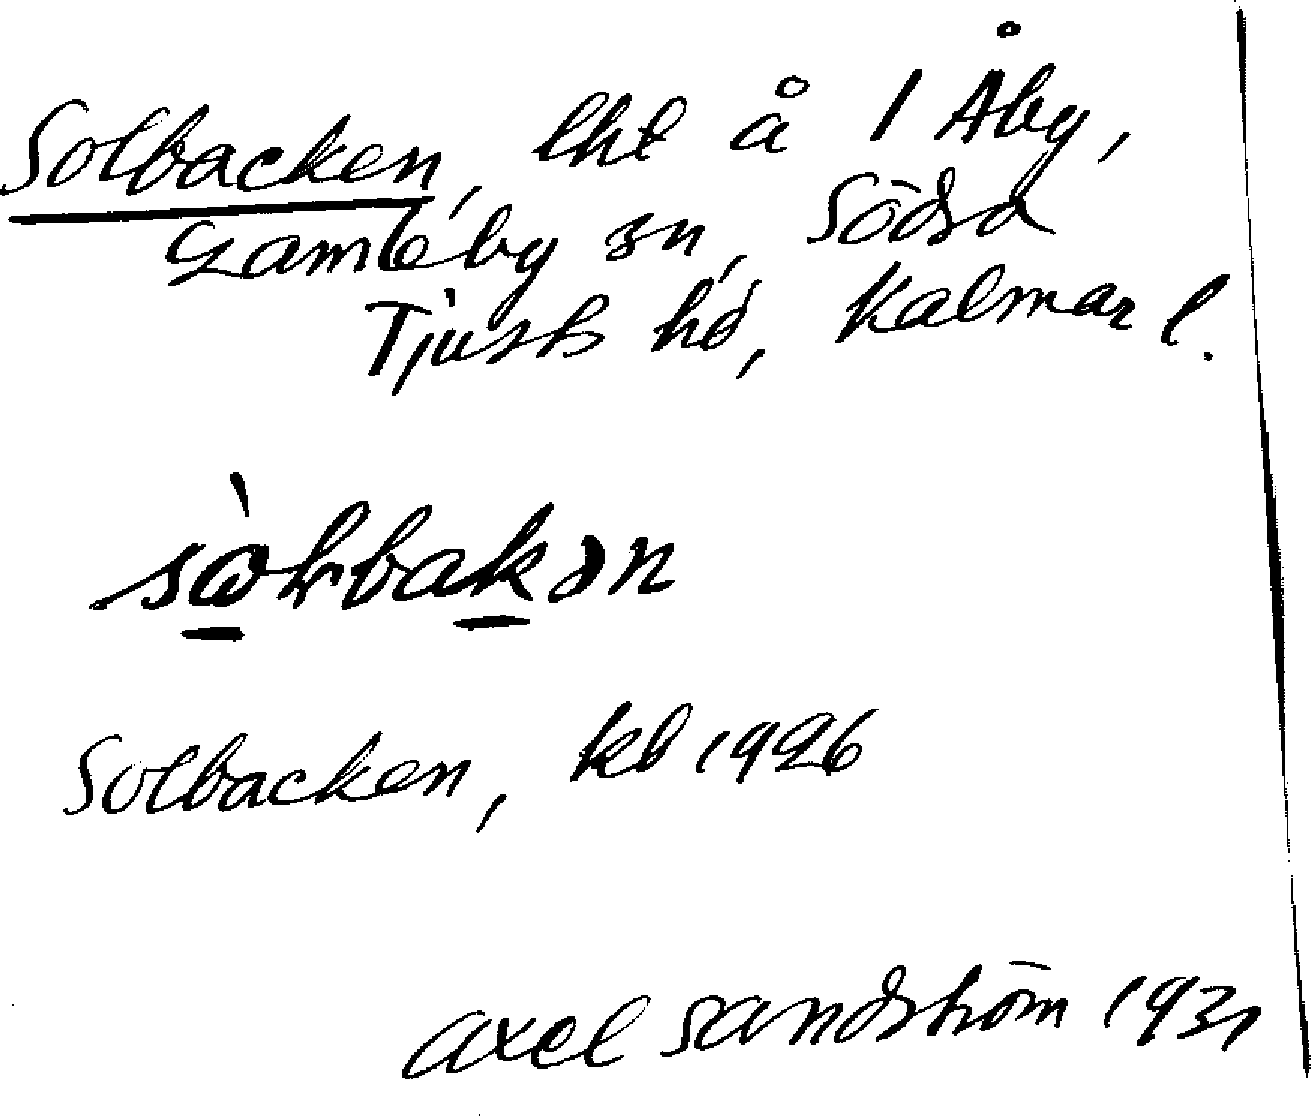 Solbacken, lht å 1 Åby,
Gamleby sn, Södra
Tjusts hd, Kalmar l.
Solbacken, kb 1926
Axel Sandström 1931